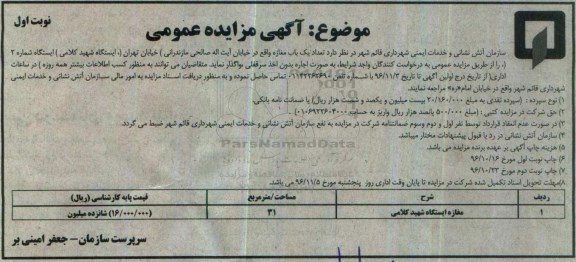 نوبت اول
موضوع: آگهی مزایده عمومی
سازمان آتش نشانی و خدمات ایمنی شهرداری قائم شهر در نظر دارد تعداد یک باب مغازه واقع در خیابان آیت اله صالحی مازندرانی ( خیابان تهران (، ایستگاه شهید کلامی ) ایستگاه شماره ۲
(، را از طریق مزایده عمومی به درخواست کنندگان واجد شرایط، به صورت اجاره بدون اخذ سرقفلی واگذار نماید. متقاضیان می توانند به منظور کسب اطلاعات بیشتر همه روزه ( در ساعات
اداری( از تاریخ درج اولین آگهی تا تاریخ ۹۶/۱۱/۳ با شماره تلفن ۰۱۱۴۲۲۶۲۶۹۰ تماس حاصل نموده و به منظور دریافت اسناد مزایده به امور مالی سازمان آتش نشانی و خدمات ایمنی
شهرداری قائم شهر واقع در خیابان امام مراجعه نمایند.
۱) نوع سپرده : (سپرده نقدی به مبلغ ۲۰/۱۶۰/۰۰۰ بیست میلیون و یکصد و شصت هزار ریال) یا ضمانت نامه بانکی.
۲) حق شرکت در مزایده کتبی : (مبلغ ۵۰۰/۰۰۰ پانصد هزار ریال واریز به حساب ۰۱۰۶۹۲۲۶۰۳۰۰۰
۳) در صورت عدم انعقاد قرارداد توسط نفر اول و دوم وسوم ضمانتنامه شرکت در مزایده به نفع سازمان آتش نشانی و خدمات ایمنی شهرداری قائم شهر ضبط می گردد.
۴) سازمان آتش نشانی در رد یا قبول پیشنهادات مختار میباشد.
۵) هزینه چاپ آگهی بر عهده برنده مزایده می باشد.
۶) چاپ نوبت اول مورخ ۹۶/۱۰/۱۶
۷) چاپ نوبت دوم مورخ ۹۶/۱۰/۲۳
۸) مهلت تحویل اسناد تکمیل شده شرکت در مزایده تا پایان وقت اداری روز پنجشنبه مورخ ۹۶/۱۱/۵ می باشد.
ردیف شرح مساحت/مترمربع قیمت پایه کارشناسی (ریال)
۱ مغازه ایستگاه شهید کلامی ۳۱ (۱۶/۰۰۰/۰۰۰) شانزده میلیون
سرپرست سازمان- جعفر امینی بر
ParsNamadData